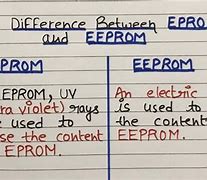 Difference Between EPRO
and EEPROM
PROM
EPROM, UV
ra violet) rays
used to
se the content
EPROM.
EEPROM
An electric
is used to
the content
EEPROM.